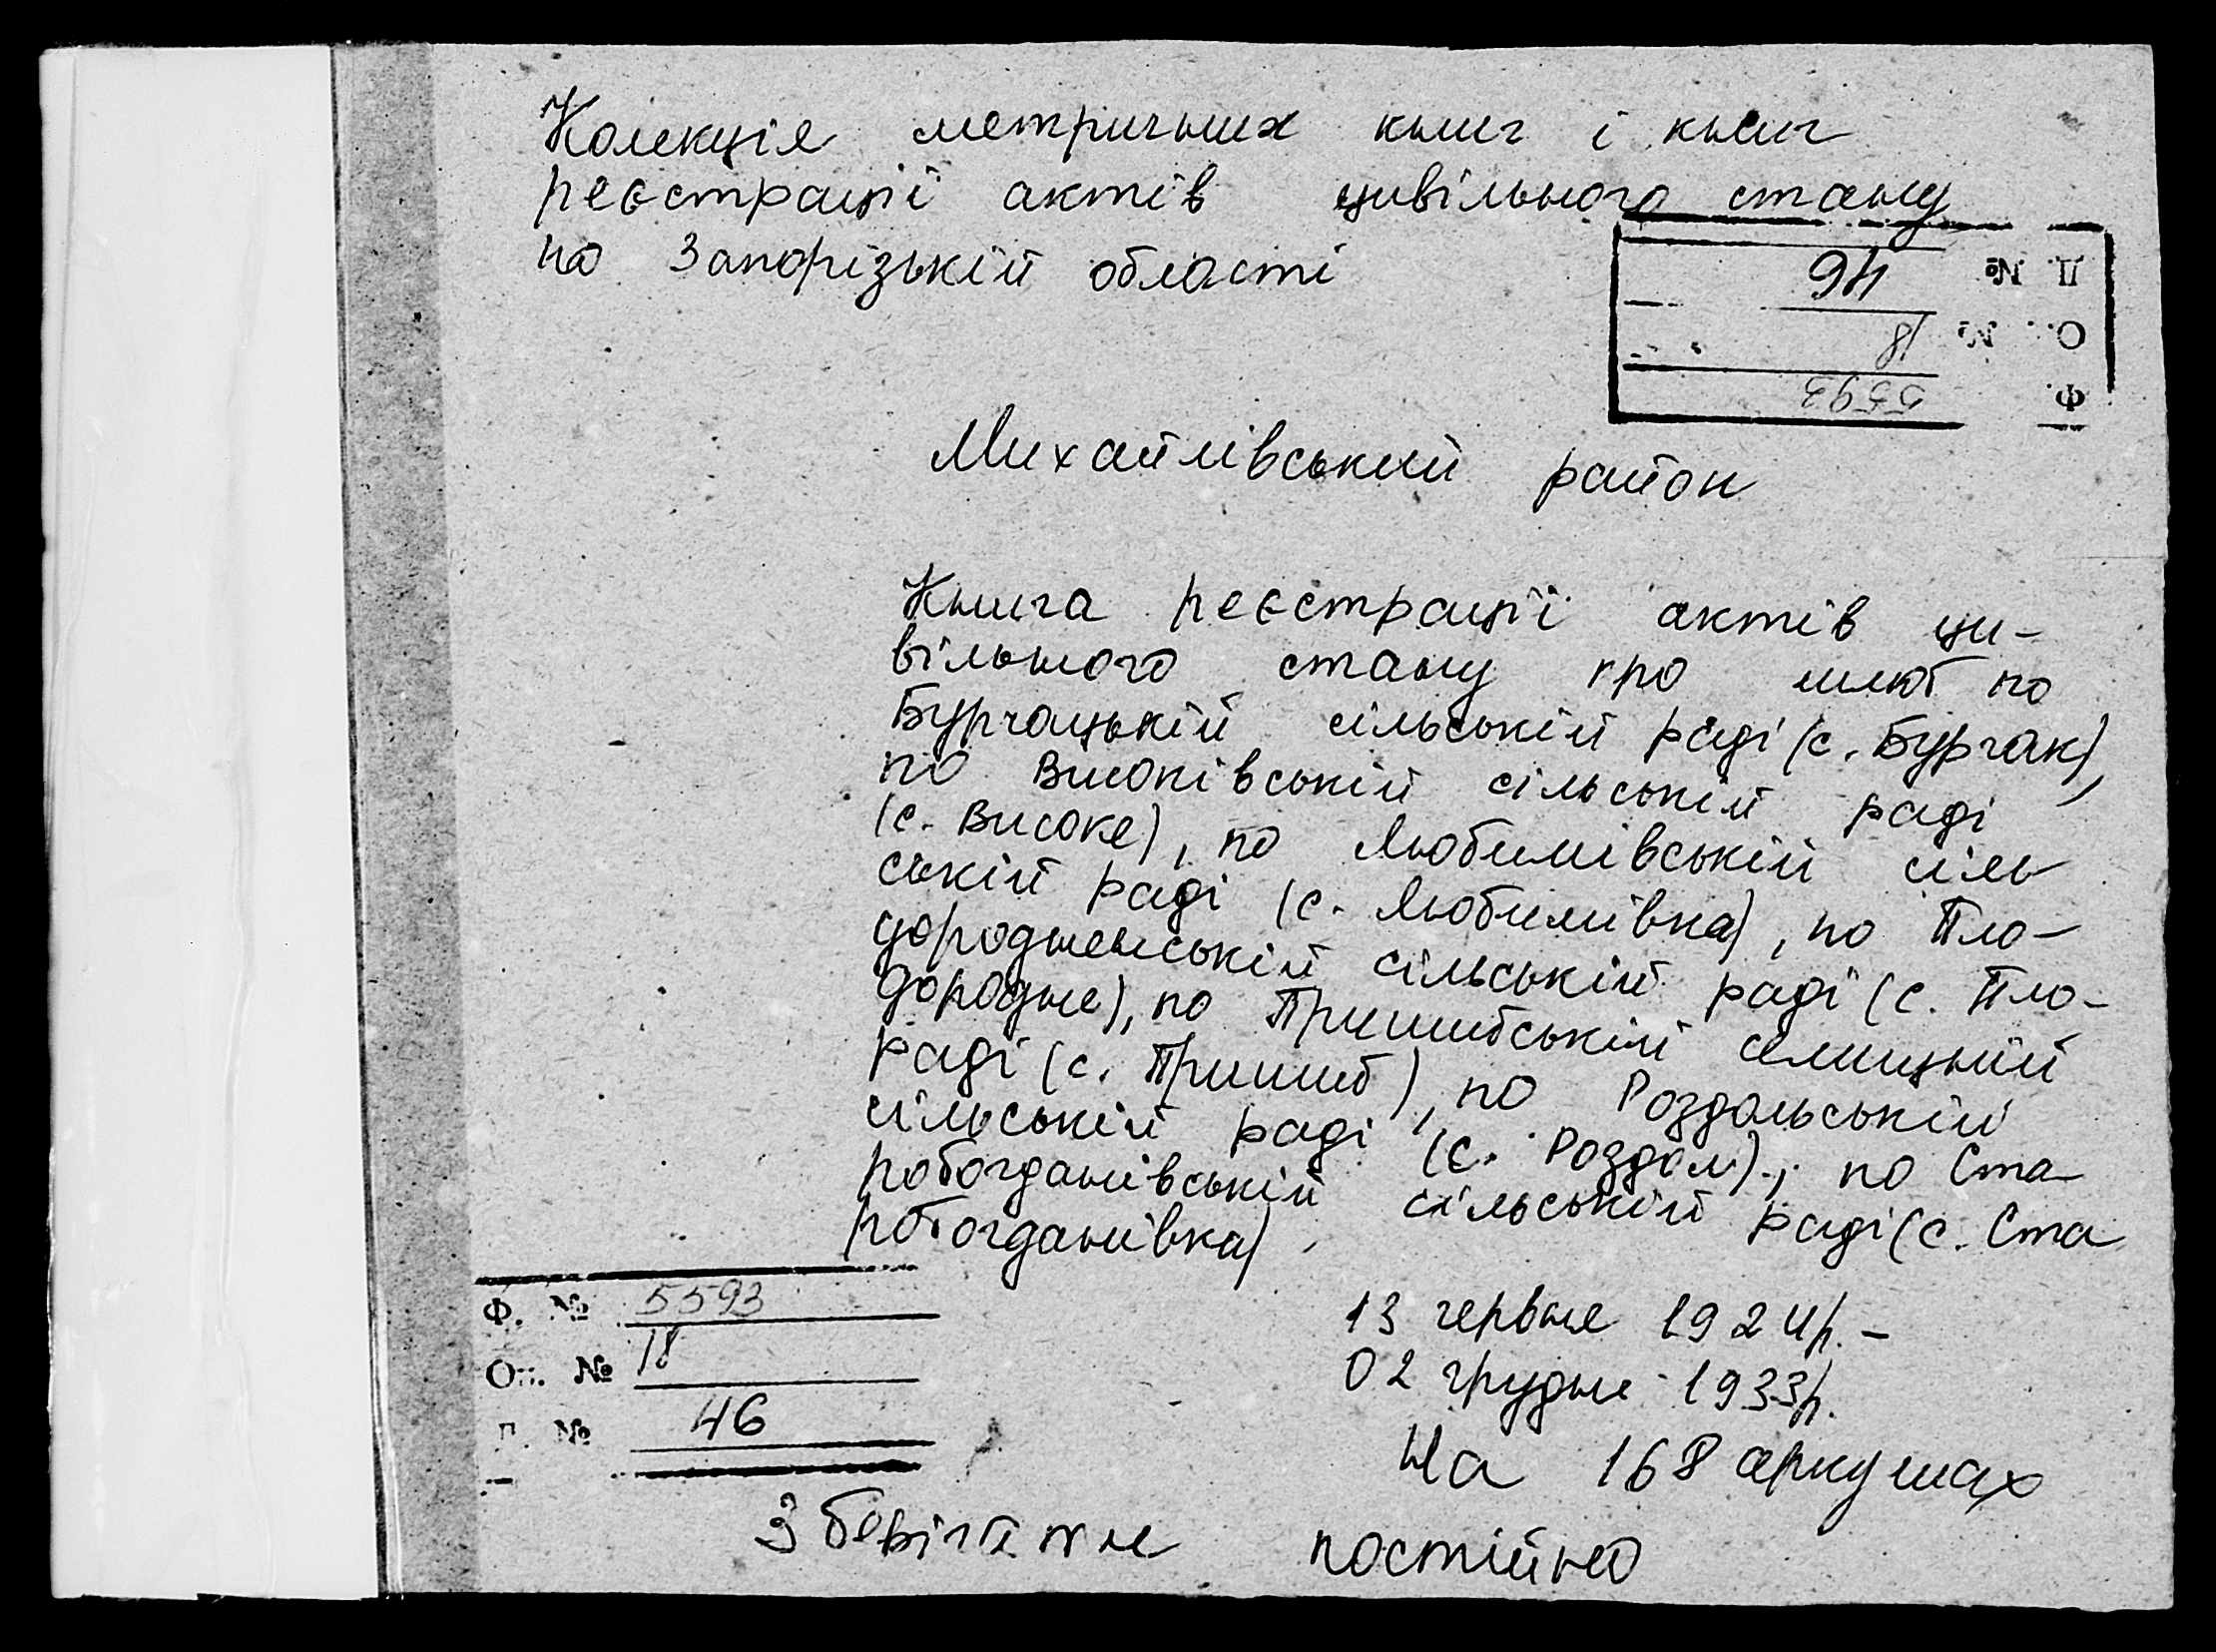 Колекція метричних книг і книг
реєстрації актів цивільного стану
по Запорізькій області
П. № 46
О. № 18
Ф. 5593
Михайлівський район
Книга реєстрації актів ци-
вільного стану про шлюб по
Бурчацькій сільській раді (с. Бурчак),
по Високівській сільській раді
(с. Високе), по Любимівській сіль
ській раді (с. Любимівка), по Пло-
дородненській сільській раді (с. Пло-
дородне), по Пришибській селищній
раді (с. Пришиб), по Роздольській
сільській раді (с. Роздол), по Ста
робогданівській сільській раді (с. Ста
робогданівка)
Ф. № 5593
Оп. № 18
П. № 46
13 червня 1924р. –
02 грудня 1933р.
На 168 аркушах
Зберігання постійно